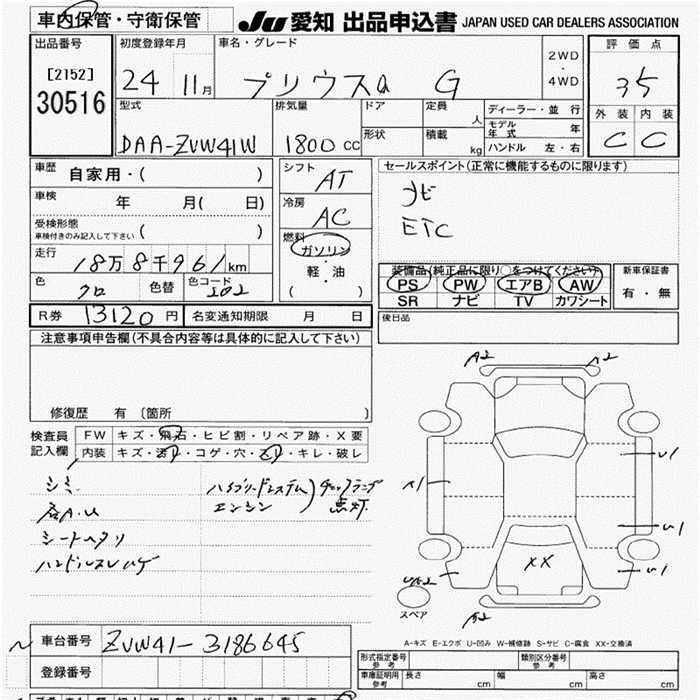 車内保管・守衛保管
JU 愛知 出品申込書 JAPAN USED CAR DEALERS ASSOCIATION
出品番号
[2152]
30516
初度登録年月
24 11月
車名・グレード
プリウスα G
2WD
・
4WD
評価点
3.5
外装 内装
C C
型式
DAA-ZVW41W
排気量
1800 CC
ドア
形状
定員
人
積載
kg
ディーラー・並 行
モデル年式 年
ハンドル 左・右
車歴
自家用・( )
車検
年 月( 日)
受検形態
車検付きのみ記入して下さい ( )
走行
18万8千961km
色
クロ
色替
色コード
202
シフト
AT
冷房
AC
燃料
ガソリン
・
軽・油
( )
セールスポイント(正常に機能するものに限ります)
ナビ
ETC
装備品(純正品に限り○をつけてください)
PS PW エアB AW
SR ナビ TV カワシート
新車保証書
有・無
R券 13120 円
名変通知期限 月 日
後日品
注意事項申告欄(不具合内容等は具体的に記入して下さい)
修復歴 有 〔箇所 〕
検査員
記入欄
FW キズ・飛石・ヒビ割・リペア跡・X要
内装 キズ・汚レ・コゲ・穴・スレ・キレ・破レ
シミ
シートヘタリ
ハンドルスレハゲ
ハイブリッドシステム
エンジン
チェックランプ
点灯
A2
A2
U1
A1
U1
U1
XX
A2
スペア
A-キズ E-エクボ U-凹み W-補修跡 S-サビ C-腐食 XX-交換済
車台番号
ZVW41-3186645
登録番号
形式指定番号
参考
類別区分番号
参考
車庫証明用
参考
長さ cm
幅 cm
高さ cm